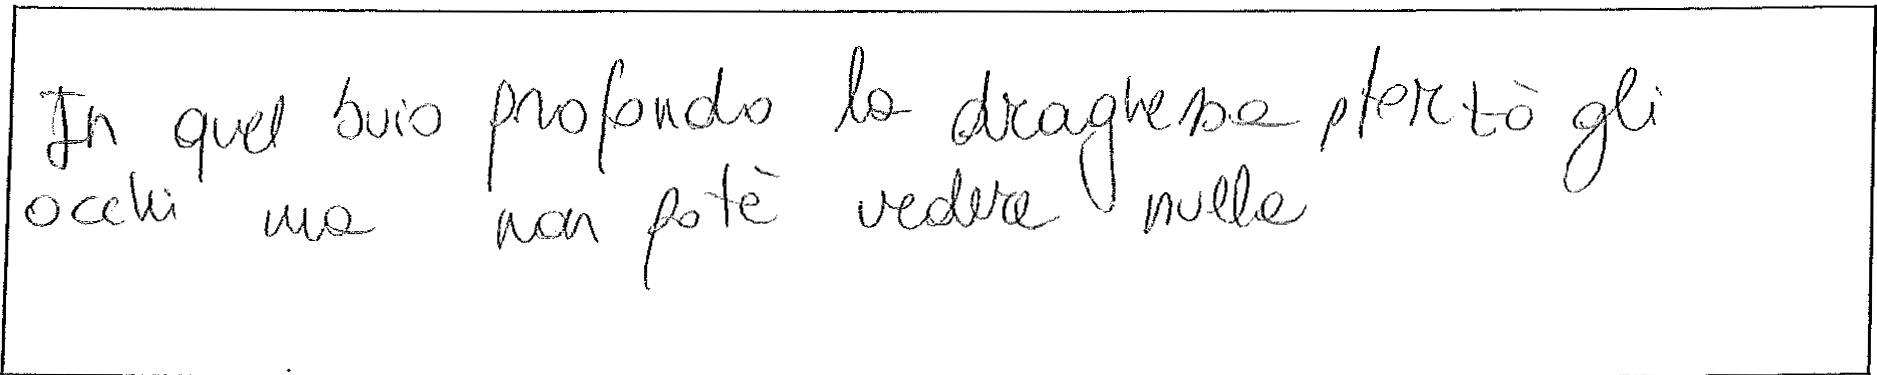 In quel buio profondo la draghessa gli
occhi ma non potè vedere nulla